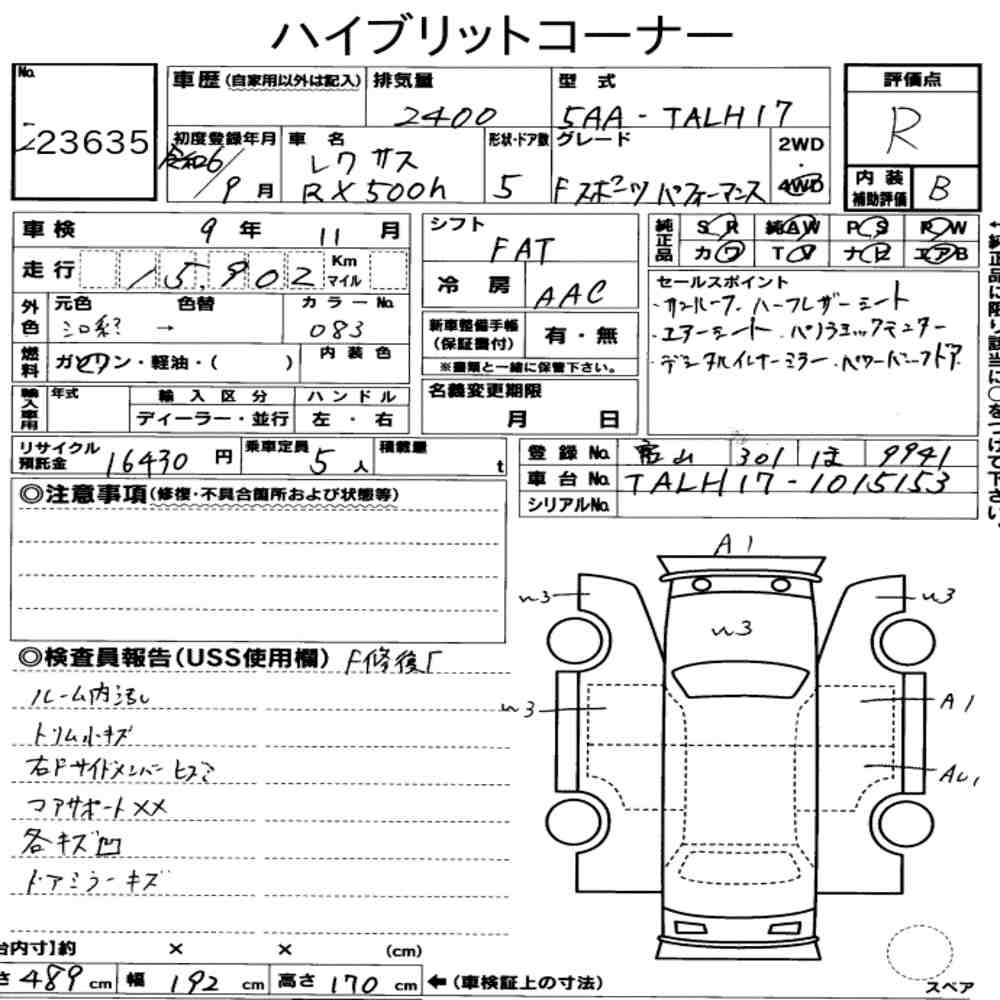 ハイブリットコーナー
No. 23635
車歴 (自家用以外は記入)
排気量 2400
型式 5AA-TALH17
評価点 R
初度登録年月 令和6/9月
車名 レクサス RX500h
形状・ドア数 5
グレード Fスポーツパフォーマンス
2WD・4WD
内装補助評価 B
車検 9年 11月
シフト FAT
純正品 SR 純AW PS RW
カワ TV ナビ エアB
走行 15,902 Km マイル
冷房 AAC
セールスポイント
・サンルーフ・ハーフレザーシート
・エアーシート・パノラミックモニター
・デジタルインナーミラー・パワーバックドア
外色 元色 シロ系? → 色替 カラーNo. 083
新車整備手帳(保証書付) 有・無
※書類と一緒に保管下さい。
燃料 ガソリン・軽油・( ) 内装色
名義変更期限 月 日
輸入車用 年式 輸入区分 ディーラー・並行 ハンドル 左・右
リサイクル預託金 16430円 乗車定員 5人 積載量 t
登録No. 富山 301 ほ 9941
車台No. TALH17-1015153
シリアルNo.
←純正品に限り該当に○をつけて下さい。
◎注意事項(修復・不具合箇所および状態等)
◎検査員報告(USS使用欄) F修復「
ルーム内汚し
トリム小キズ
右Fサイドメンバーヒズミ
コアサポートXX
各キズ凹
ドアミラーキズ
A1
w3 w3
w3
w3 A1
AU1
台内寸】約 × × (cm)
さ 489cm 幅 192cm 高さ 170cm ←(車検証上の寸法)
スペア